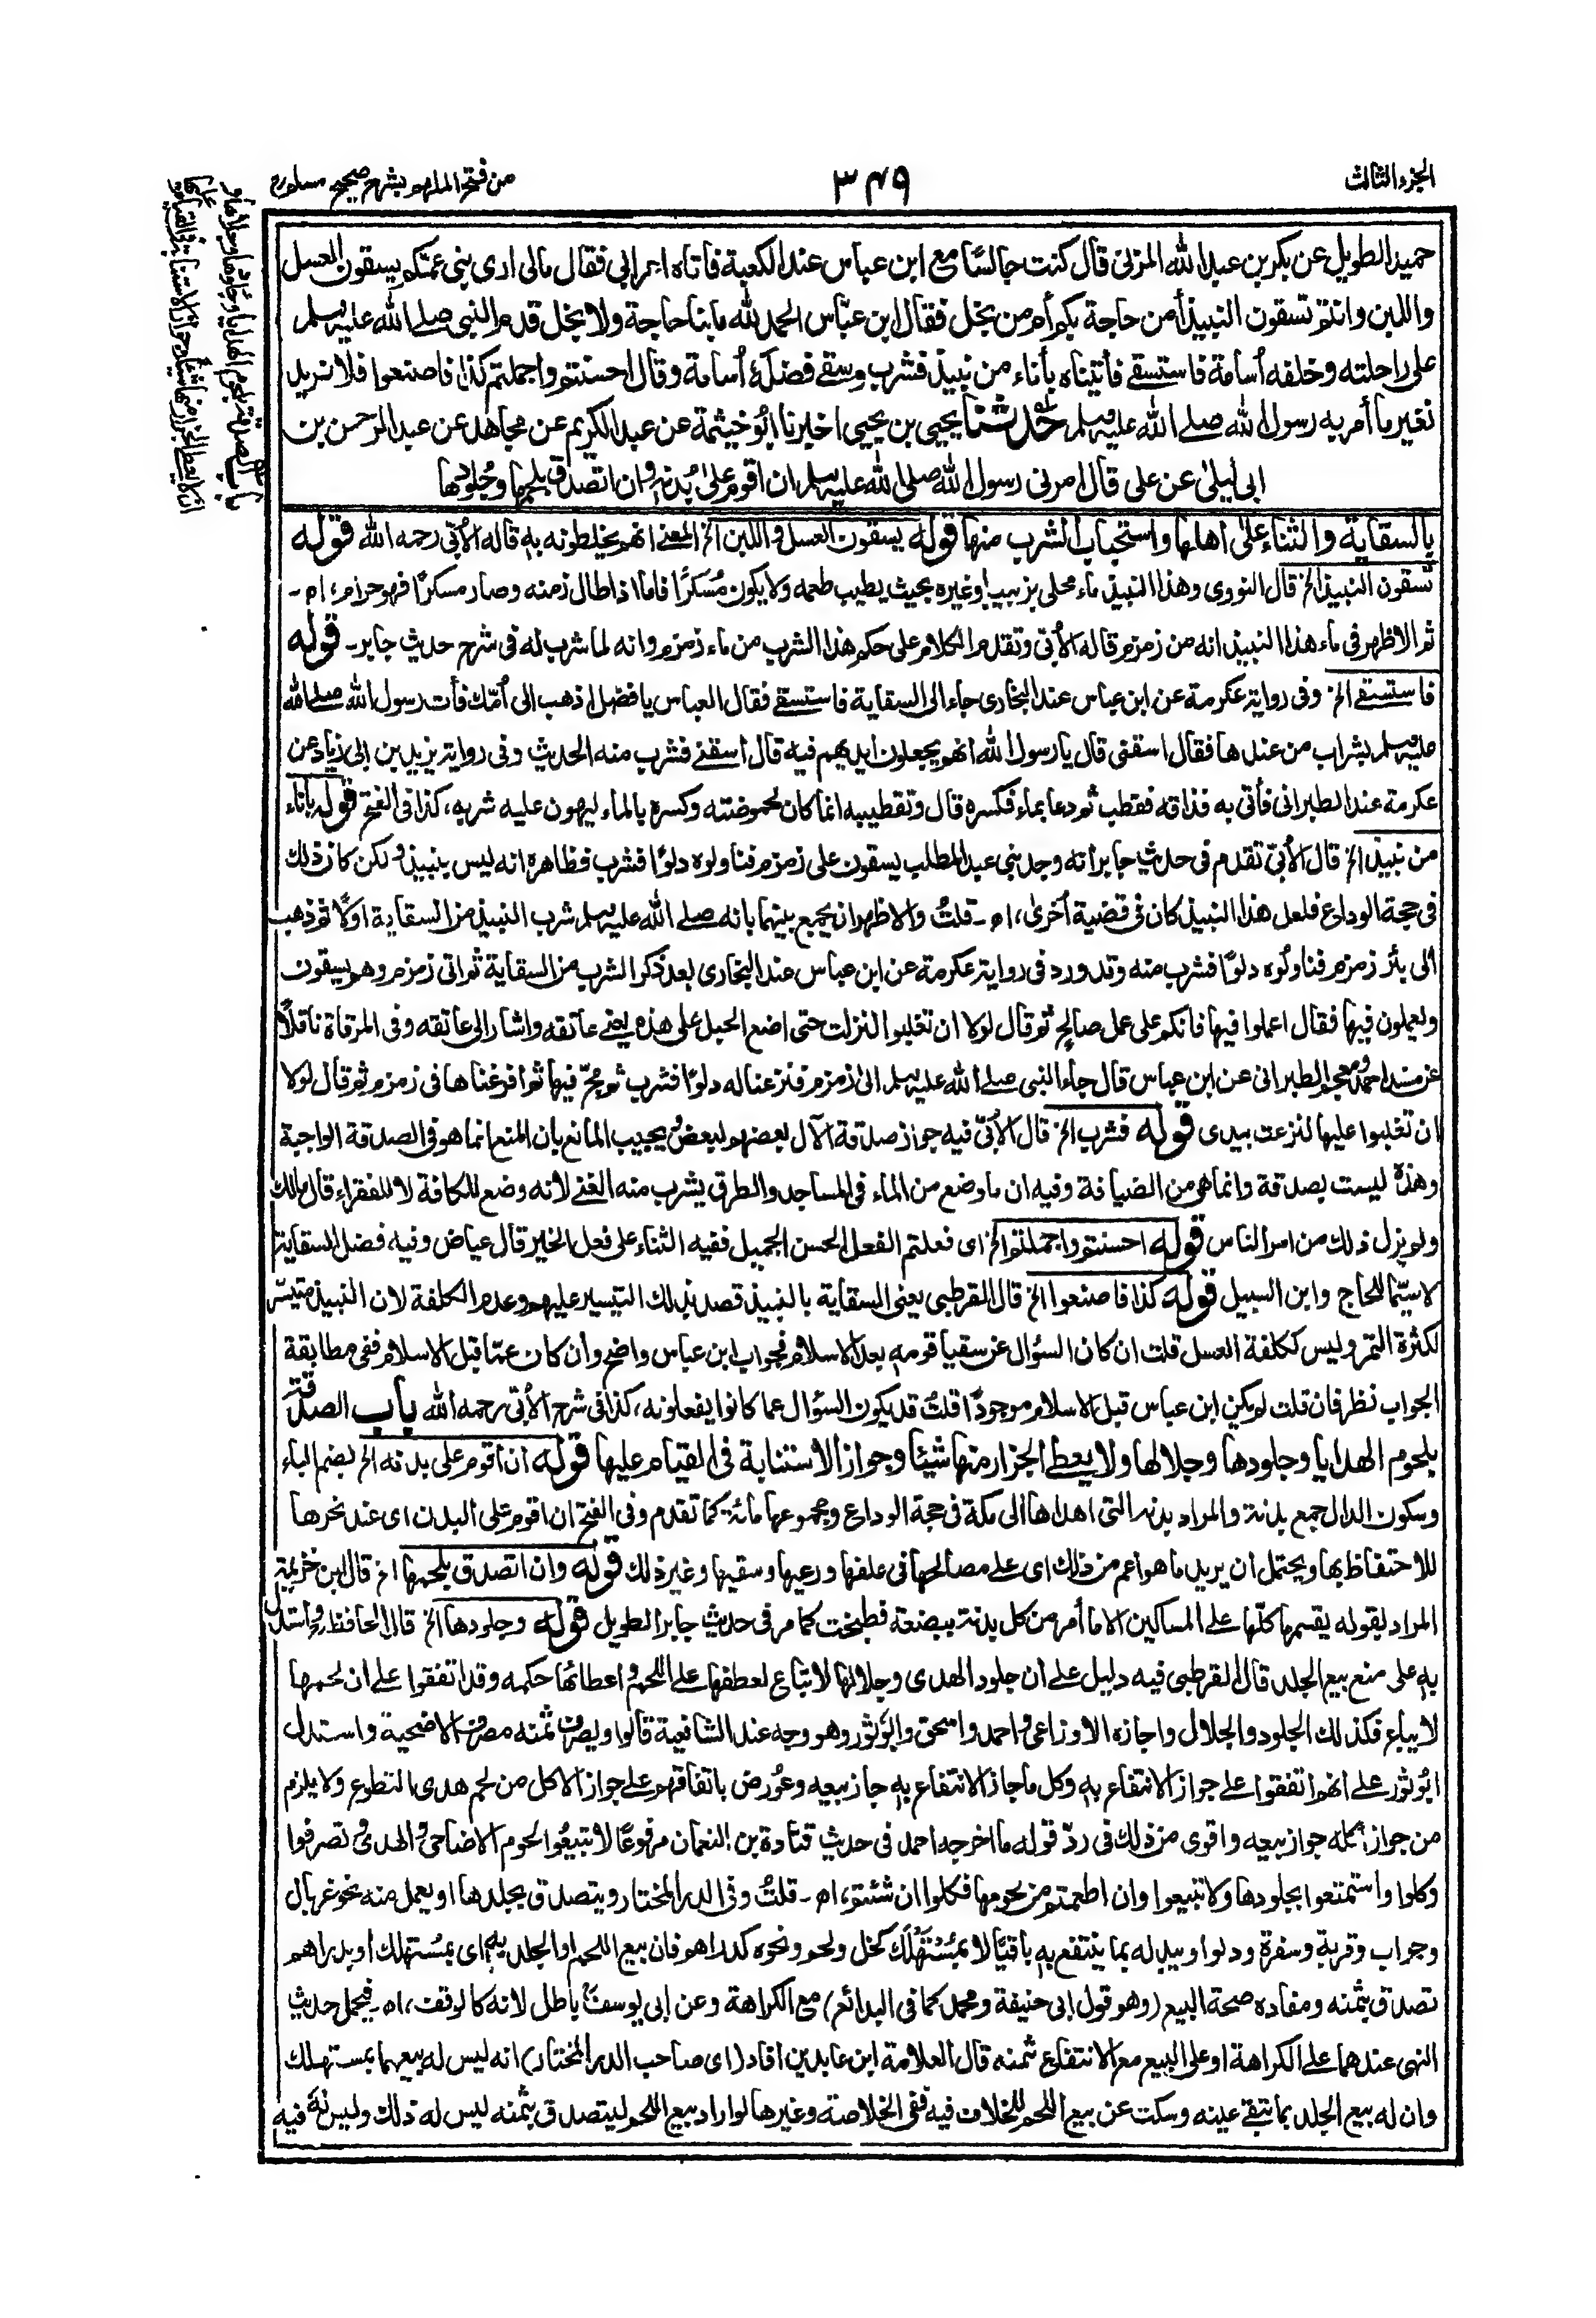 الجزء الثالث
٣٤٩
من فتح الملهم بشرح صحيح مسلم رح
باب الصدقة بلحوم الهدايا وجلودها وجلالها و
ان لا يعطى الجزار منها شيئا وجواز الاستنابة فى القيام
عليها
حميد الطويل عن بكر بن عبد الله المزنى قال كنت جالسًا مع ابن عباس عند الكعبة فاتاه اعرابى فقال مالى ارى بنى عمّكم يسقون العسل
واللبن وانتم تسقون النبيذ أمن حاجة بكم أم من بخل فقال ابن عبّاس الحمد لله ما بنا حاجة ولا بخل قدم النبى صلى الله عليه وسلم
على راحلته وخلفه أسامة فاستسقى فأتيناه بأناء من نبيذ فشرب وسقى فضله أسامة وقال احسنتم واجملتم كذا فاصنعوا فلا نريد
نغير ما أمر به رسول الله صلى الله عليه وسلم حدثنا يحيى بن يحيى اخبرنا ابُو خيثمة عن عبد الكريم عن مجاهد عن عبد الرحمن بن
ابى ليلىٰ عن على قال امرنى رسول الله صلى الله عليه وسلم ان اقوم علىٰ بُدنه وان اتصدق بلحمها وجُلودها
بالسقاية والثناء علىٰ اهلها واستحباب الشرب منها قوله يسقون العسل واللبن الخ المعنى انهم يخلطونه به قاله الأبّى رحمه الله قوله
تسقون النبيذ الخ قال النووى وهذا النبيذ ماء محلى بزبيب اوغيره بحيث يطيب طعمه ولا يكون مُسكرًا فاما اذا طال زمنه وصار مسكرًا فهو حرام، اه-
ثم الاظهر فى ماء هذا النبيذ انه من زمزم قاله الأبّى وتقدم الكلام على حكم هذا الشرب من ماء زمزم وانه لما شرب له فى شرح حديث جابر- قوله
فاستسقى الخ وفى رواية عكرمة عن ابن عباس عند البخارى جاء الى السقاية فاستسقى فقال العباس يا فضل اذهب الى أمّك فأت رسول الله صلى الله
عليه وسلم بشراب من عندها فقال اسقنى قال يا رسول الله انهم يجعلون ايديهم فيه قال اسقنى فشرب منه الحديث وفى رواية يزيد بن ابى زياد عن
عكرمة عند الطبرانى فأتى به فذاقه فقطب ثم دعا بماء فكسره قال وتقطيبه انما كان لحموضته وكسره بالماء ليهون عليه شربه، كذا فى الفتح قوله باناء
من نبيذ الخ قال الأبّى تقدم فى حديث جابر أنه وجد بنى عبد المطلب يسقون على زمزم فناولوه دلوًا فشرب فظاهره انه ليس بنبيذ ولكن كان ذلك
فى حجة الوداع فلعل هذا النبيذ كان فى قضية أخرىٰ، اه- قلتُ والاظهر ان يجمع بينهما بانه صلى الله عليه وسلم شرب النبيذ من السقاية اولًا ثم ذهب
الى بئر زمزم فناولوه دلوًا فشرب منه وقد ورد فى رواية عكرمة عن ابن عباس عند البخارى بعد ذكر الشرب من السقاية ثم اتى زمزم وهم يسقون
ويعملون فيها فقال اعملوا فيها فانكم على عمل صالح ثم قال لولا ان تغلبوا لنزلت حتى اضع الحبل على هذه يعنى عاتقه واشار الى عاتقه وفى المرقاة ناقلًا
عن مسند احمد ومعجم الطبرانى عن ابن عباس قال جاء النبى صلى الله عليه وسلم الىٰ زمزم فنزعنا له دلوًا فشرب ثم مجّ فيها ثم افرغناها فى زمزم ثم قال لولا
ان تغلبوا عليها لنزعت بيدى قوله فشرب الخ قال الأبّى فيه جواز صدقة الآل بعضهم لبعض ويجيب المانع بان المنع انما هو فى الصدقة الواجبة
وهذه ليست بصدقة وانما هى من الضيافة وفيه ان ما وضع من الماء فى المساجد والطرق يشرب منه الغنى لانه وضع للكافة لا للفقراء قال مالك
ولم يزل ذلك من امر الناس قوله احسنتم واجملتم الخ اى فعلتم الفعل الحسن الجميل ففيه الثناء على فعل الخير قال عياض وفيه فضل السقاية
لا سيّما للحاج وابن السبيل قوله كذا فاصنعوا الخ قال القرطبى يعنى السقاية بالنبيذ قصد بذلك التيسير عليهم وعدم الكلفة لان النبيذ متيسّر
لكثرة التمر وليس ككلفة العسل قلت ان كان السؤال عن سقيا قومه بعد الاسلام فجواب ابن عباس واضح وان كان عمّا قبل الاسلام ففى مطابقة
الجواب نظر فان قلت لم يكن ابن عباس قبل الاسلام موجودًا قلتُ قد يكون السؤال عما كانوا يفعلونه، كذا فى شرح الأبّى رحمه الله باب الصدقة
بلحوم الهدايا وجلودها وجلالها ولا يعطى الجزار منها شيئا وجواز الاستنابة فى القيام عليها قوله ان اقوم على بدنه الخ بضم الباء
وسكون الدال جمع بدنة والمراد بدنه التى اهداها الى مكة فى حجة الوداع ومجموعها مائة كما تقدم وفى الفتح ان اقوم على البدن اى عند نحرها
للاحتفاظ بها ويحتمل ان يريد ما هو اعم من ذلك اى على مصالحها فى علفها ورعيها وسقيها وغير ذلك قوله وان اتصدق بلحمها الخ قال ابن خزيمة
المراد بقوله يقسمها كلّها على المساكين الا ما أمر من كل بدنة ببضعة فطبخت كما مر فى حديث جابر الطويل قوله وجلودها الخ قال الحافظ رح واستدل
به على منع بيع الجلد قال القرطبى فيه دليل على ان جلود الهدى وجلالها لا تباع لعطفها على اللحم واعطائها حكمه وقد اتفقوا على ان لحمها
لا يباع فكذلك الجلود والجلال واجازه الاوزاعى واحمد واسحق وابو ثور وهو وجه عند الشافعية قالوا ويصرف ثمنه مصرف الاضحية واستدل
ابُو ثور على انهم اتفقوا على جواز الانتفاع به وكل ما جاز الانتفاع به جاز بيعه وعُورض باتفاقهم على جواز الاكل من لحم هدى التطوع ولا يلزم
من جواز اكله جواز بيعه واقوى من ذلك فى ردّ قوله ما اخرجه احمد فى حديث قتادة بن النعمان مرفوعًا لا تبيعُوا لحوم الاضاحى والهدى وتصدقوا
وكلوا واستمتعوا بجلودها ولا تبيعوا وان اطعمتم من لحومها فكلوا ان شئتم، اه- قلتُ وفى الدر المختار ويتصدق بجلدها او يعمل منه نحو غربال
وجراب وقربة وسفرة ودلو او يبدله بما ينتفع به باقيًا لا بمُسْتَهْلَك كخل ولحم ونحوه كدراهم فان بيع اللحم او الجلد به اى بمُستهلك او بدراهم
تصدق بثمنه ومفاده صحة البيع (وهو قول ابى حنيفة ومحمد كما فى البدائع) مع الكراهة وعن ابى يوسف باطل لانه كالوقف، اه- فيحمل حديث
النهى عندهما على الكراهة او على البيع مع الانتفاع بثمنه قال العلامة ابن عابدين افاد (اى صاحب الدر المختار) انه ليس له بيعهما بمستهلك
وان له بيع الجلد بما تبقى عينه وسكت عن بيع اللحم للخلاف فيه ففى الخلاصة وغيرها لو اراد بيع اللحم ليتصدق بثمنه ليس له ذلك وليس له فيه